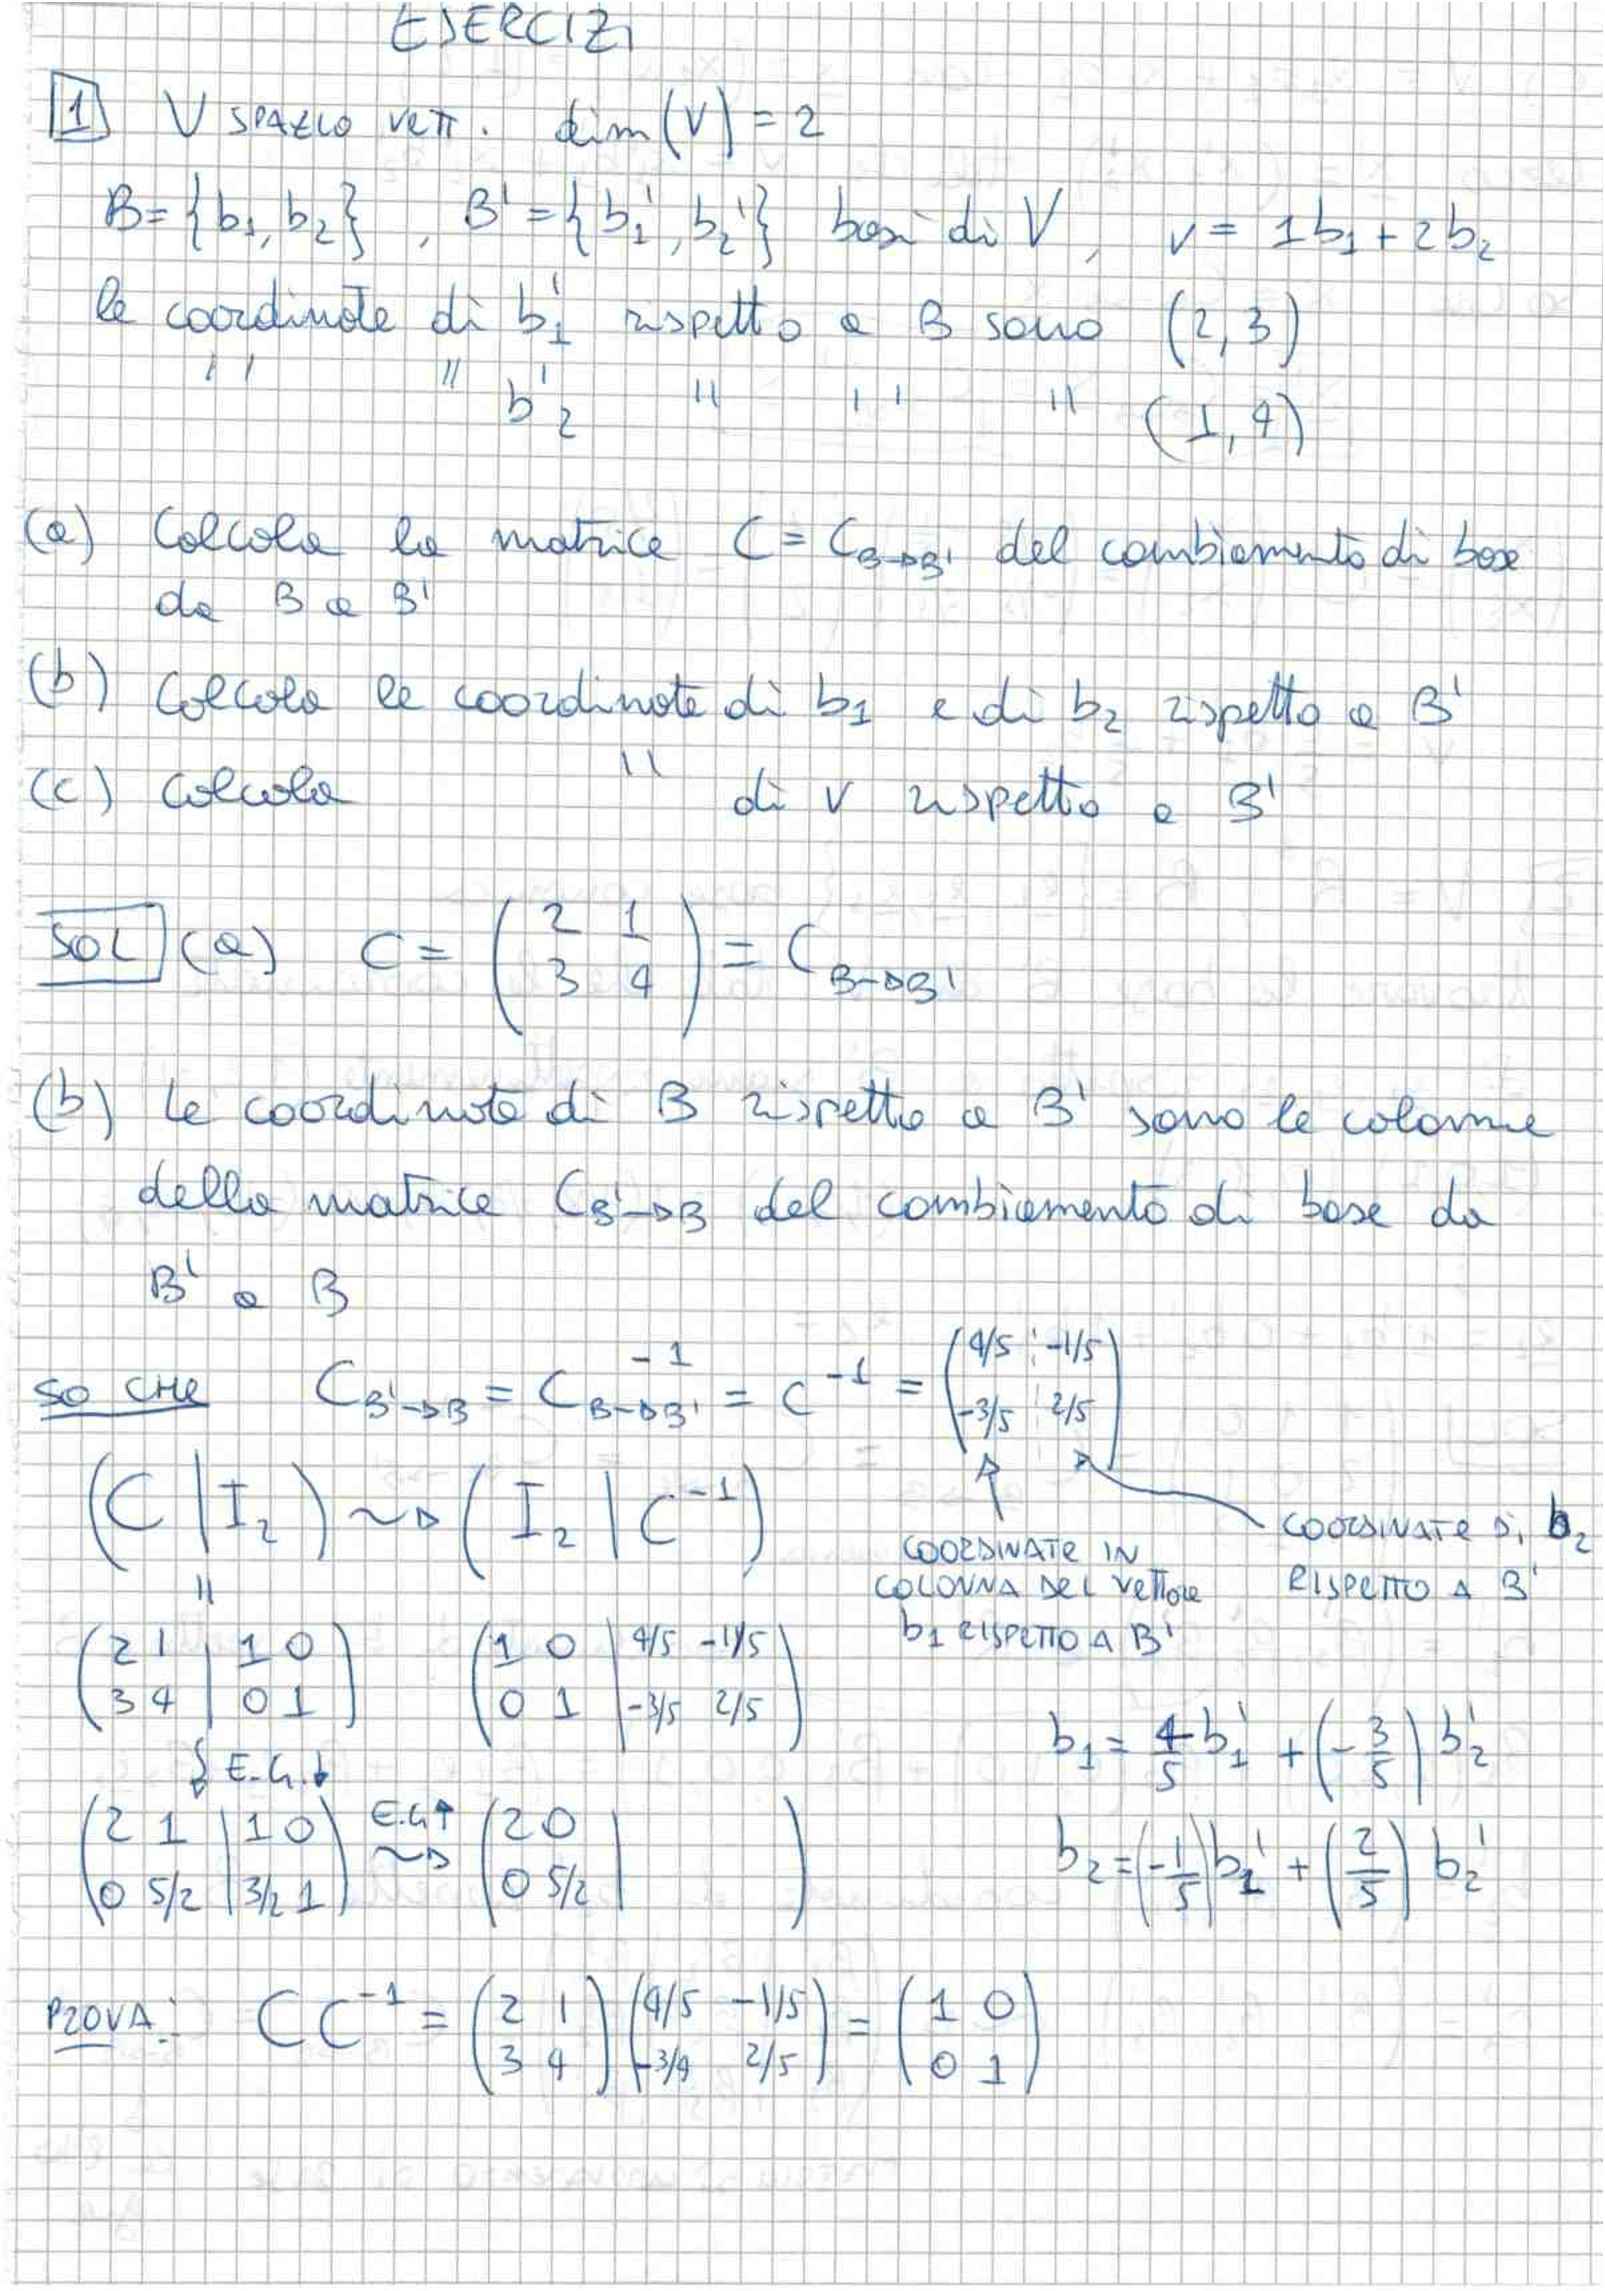 ESERCIZI
1 V SPAZIO VETT. dim(V) = 2
B = {b1, b2}, B' = {b1', b2'} basi di V, v = 1b1 + 2b2
le coordinate di b1' rispetto a B sono (2, 3)
" " b2' " " " (1, 4)
(a) Calcola la matrice C = C_{B→B'} del cambiamento di base
da B a B'
(b) Calcola le coordinate di b1 e di b2 rispetto a B'
(c) Calcola " di v rispetto a B'
SOL (a) C = (2 1 / 3 4) = C_{B→B'}
(b) Le coordinate di B rispetto a B' sono le colonne
della matrice C_{B'→B} del cambiamento di base da
B' a B
SO CHE C_{B'→B} = C_{B→B'}^{-1} = C^{-1} = (4/5 -1/5 / -3/5 2/5)
(C | I2) ~> (I2 | C^{-1})
COORDINATE IN
COLONNA DEL VETTORE
b1 RISPETTO A B'
COORDINATE DI b2
RISPETTO A B'
"
(2 1 | 1 0 / 3 4 | 0 1) (1 0 | 4/5 -1/5 / 0 1 | -3/5 2/5)
E.G.↓
(2 1 | 1 0 / 0 5/2 | 3/2 1) E.G↑ ~> (2 0 | / 0 5/2 | )
b1 = 4/5 b1' + (-3/5) b2'
b2 = (-1/5) b1' + (2/5) b2'
PROVA: C C^{-1} = (2 1 / 3 4) (4/5 -1/5 / -3/4 2/5) = (1 0 / 0 1)